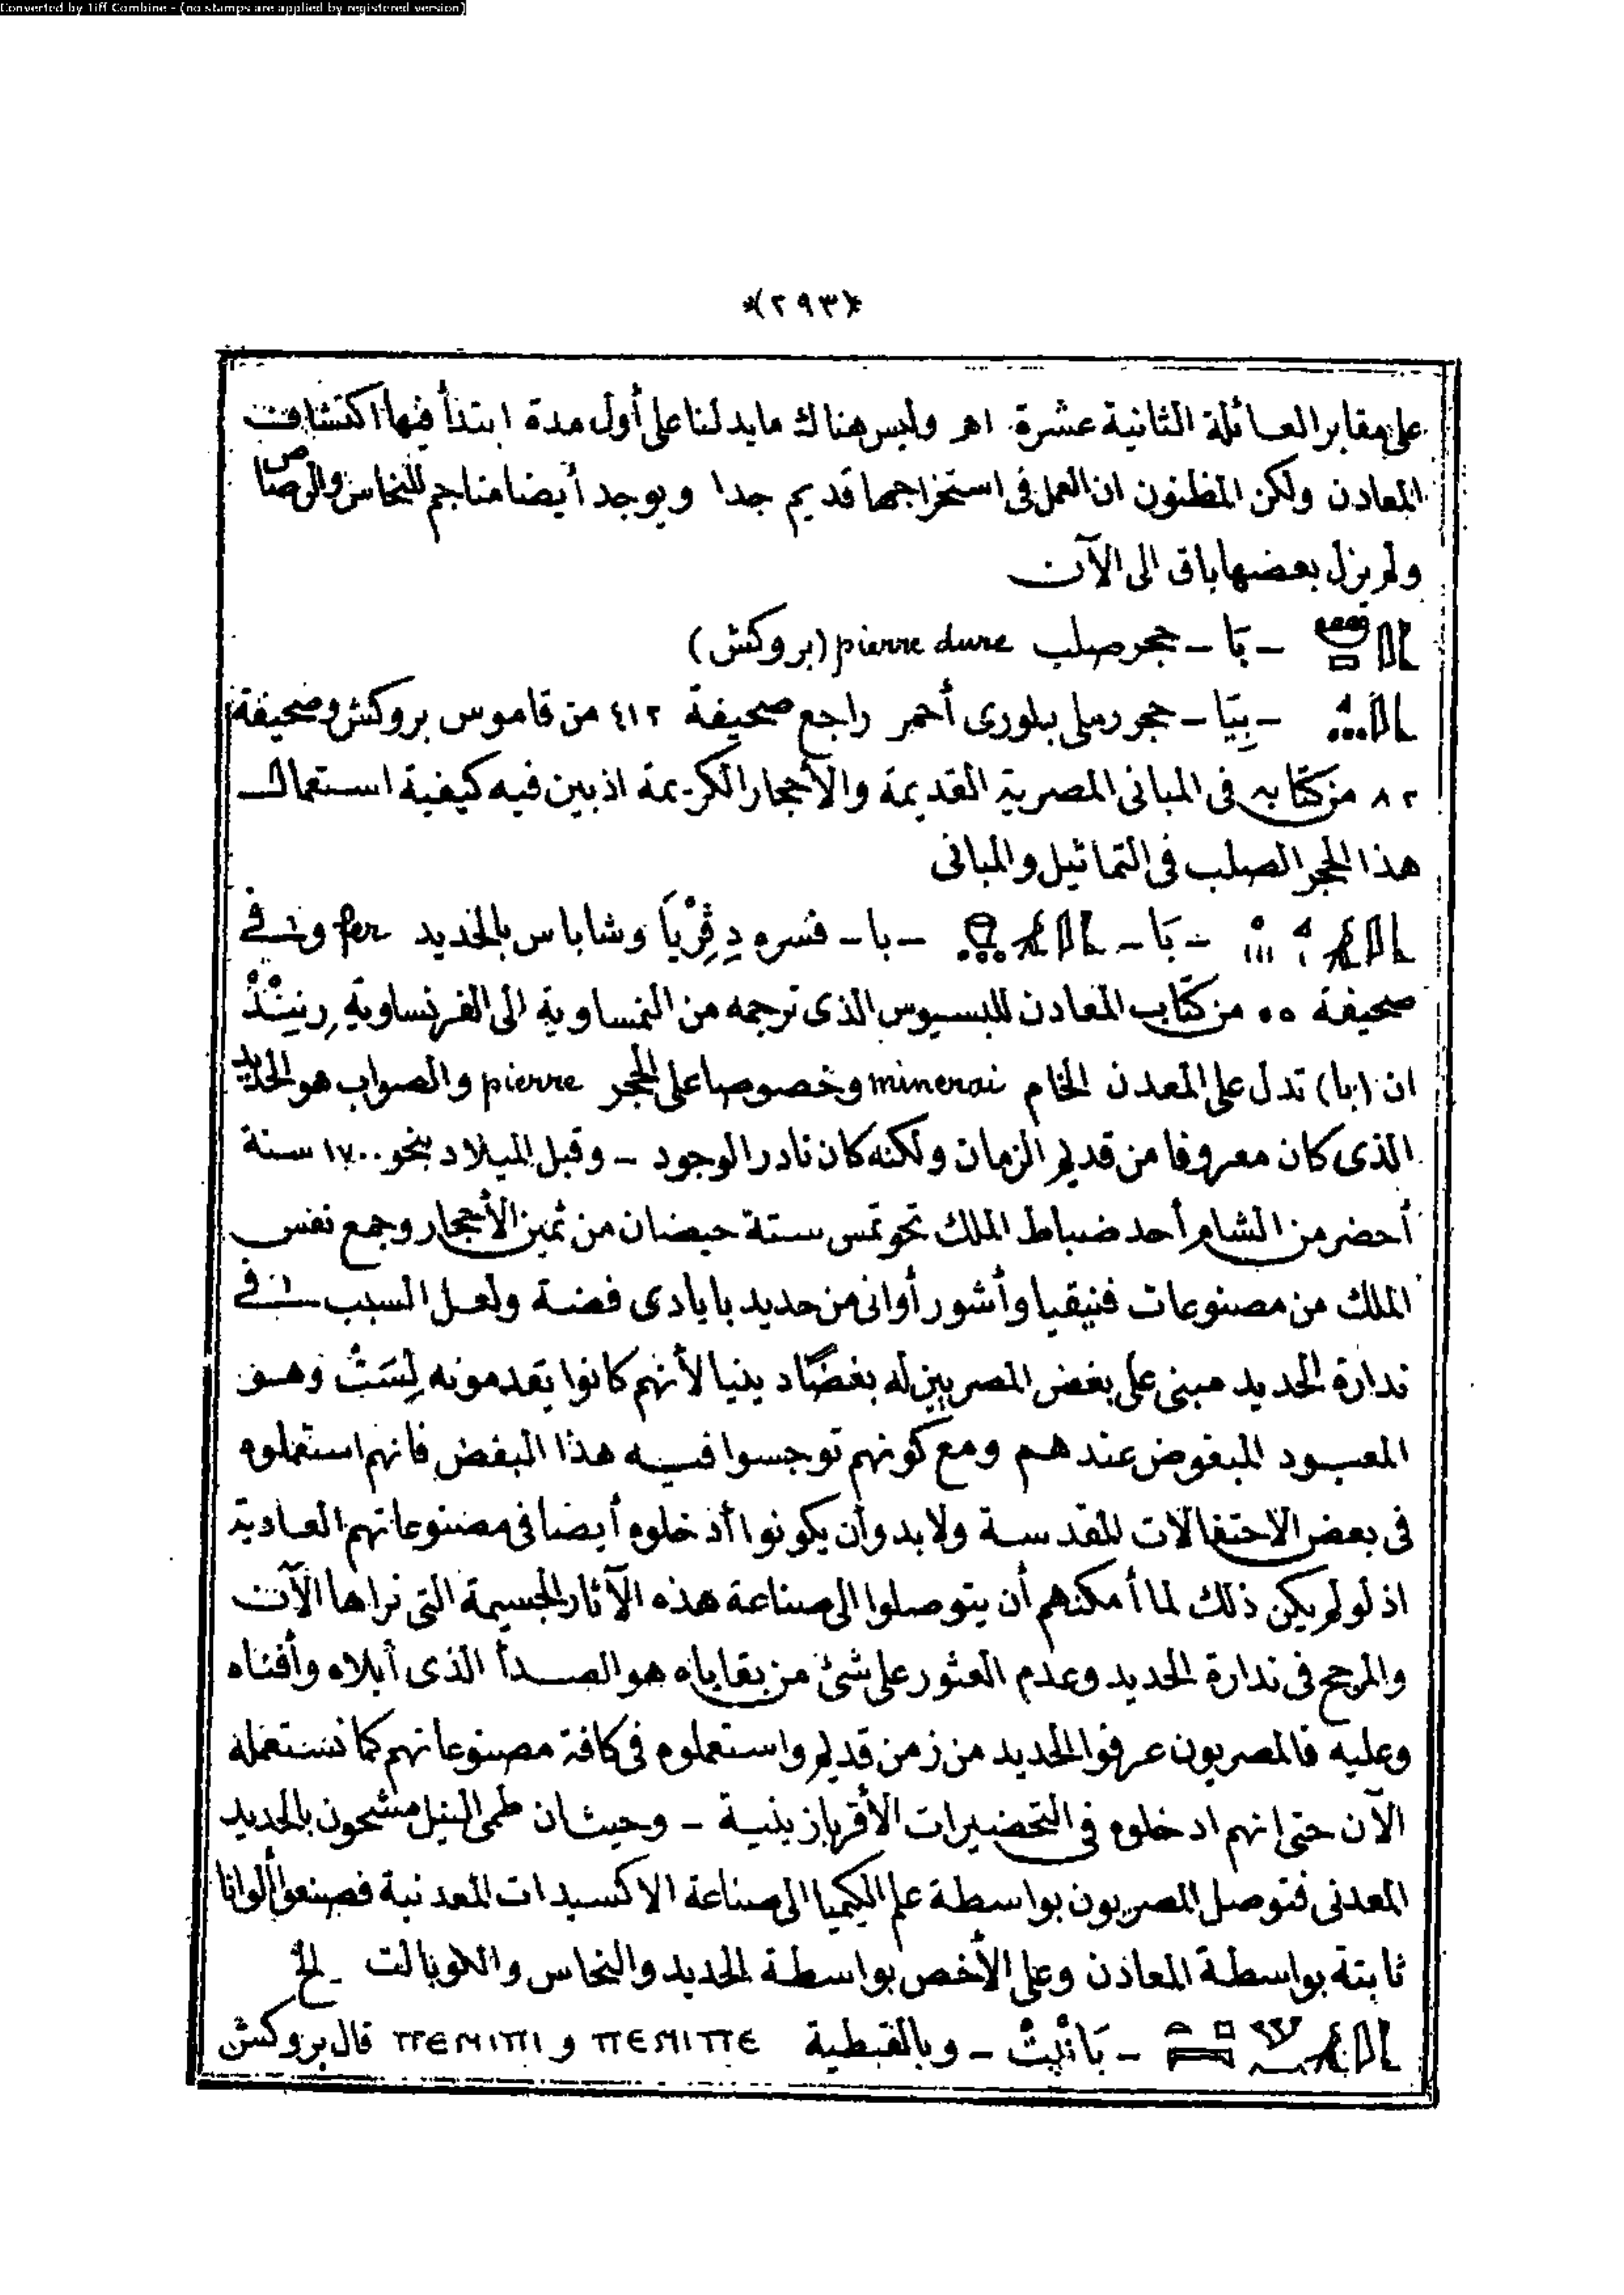 Converted by Tiff Combine - (no stamps are applied by registered version)
*(٢٩٣)*
على مقابر العائلة الثانية عشرة. اهـ وليس هناك ما يدلنا على أول مدة ابتدأ فيها اكتشاف
المعادن ولكن المظنون ان العمل فى استخراجها قديم جدا ويوجد أيضا مناجم للنحاس والرصاص
ولم يزل بعضها باق الى الآن
- بَا - حجر صلب pierre dure (بروكش)
- بِيَا - حجر رملى بلورى أحمر راجع صحيفة ٤١٢ من قاموس بروكش وصحيفة
٨٢ من كتابه فى المبانى المصرية القديمة والأحجار الكريمة اذ بين فيه كيفية استعمال
هذا الحجر الصلب فى التماثيل والمبانى
- بَا - - با - فسره دِڤِرْيَا وشاباس بالحديد fer وفى
صحيفة ٥٥ من كتاب المعادن للبسيوس الذى ترجمه من النمساوية الى الفرنساوية
ان (با) تدل على المعدن الخام minerai وخصوصا على الحجر pierre والصواب هو الحديد
الذى كان معروفا من قديم الزمان ولكنه كان نادر الوجود - وقبل الميلاد بنحو ١٧٠٠ سنة
أحضر من الشام أحد ضباط الملك تحوتمس ستة حيضان من ثمين الأحجار وجمع نفس
الملك من مصنوعات فنيقيا وأشور أوانى من حديد بايادى فضة ولعل السبب فى
ندارة الحديد مبنى على بغض المصريين له بغضًا دينيا لأنهم كانوا يقدمونه لِسَتْ وهو
المعبود المبغوض عندهم ومع كونهم توجسوا فيه هذا البغض فانهم استعملوه
فى بعض الاحتفالات المقدسة ولا بد وأن يكونوا أدخلوه أيضا فى مصنوعاتهم العادية
اذ لو لم يكن ذلك لما أمكنهم أن يتوصلوا الى صناعة هذه الآثار الجسيمة التى نراها الآن
والمرجح فى ندارة الحديد وعدم العثور على شئ من بقاياه هو الصدأ الذى أبلاه وأفناه
وعليه فالمصريون عرفوا الحديد من زمن قديم واستعملوه فى كافة مصنوعاتهم كما نستعمله
الآن حتى انهم ادخلوه فى التحضيرات الأقرباز ينية - وحيث ان طمى النيل مشحون بالحديد
المعدنى فتوصل المصريون بواسطة علم الكيميا الى صناعة الاكسيدات المعدنية فصنعوا ألوانا
ثابتة بواسطة المعادن وعلى الأخص بواسطة الحديد والنحاس والكوبالت - الخ
- بَانِيتْ - وبالقبطية ⲡⲉⲛⲓⲡⲉ و ⲡⲉⲛⲓⲡⲓ قال بروكش